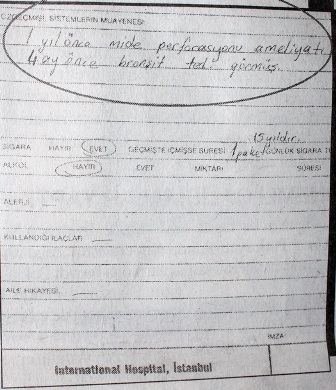 ÖZGEÇMİŞİ, SİSTEMLERİN MUAYENESİ:
1 yıl önce mide perforasyonu ameliyatı
4 ay önce bronşit ted. görmüş.
15 yıldır.
SİGARA HAYIR EVET GEÇMİŞTE İÇMİŞSE SÜRESİ 1 paket GÜNLÜK SİGARA
ALKOL HAYIR EVET MİKTARI SÜRESİ
ALERJİ —
KULLANDIĞI İLAÇLAR —
AİLE HİKAYESİ. —
İMZA
International Hospital, İstanbul